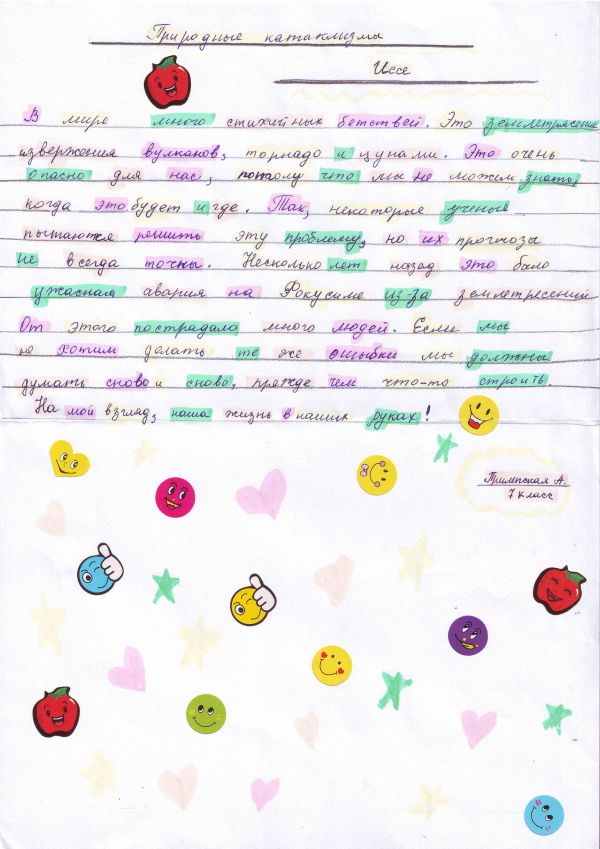 Природные катаклизмы
Иссе
В мире много стихийных бетствей. Это землетрясение
извержения вулканов, торнадо и цунами. Это очень
опасно для нас, потому что мы не можем знать,
когда это будет и где. Так, некоторые ученые
пытаются решить эту проблему, но их прогнозы
не всегда точны. Несколько лет назад это было
ужасная авария на Фокусиме из-за землетресений
От этого пострадало много людей. Если мы
не хотим делать те же ошибки мы должны
думать снова и снова, прежде чем что-то строить.
На мой взгляд, наша жизнь в наших руках!
Прилепская А.
7 класс